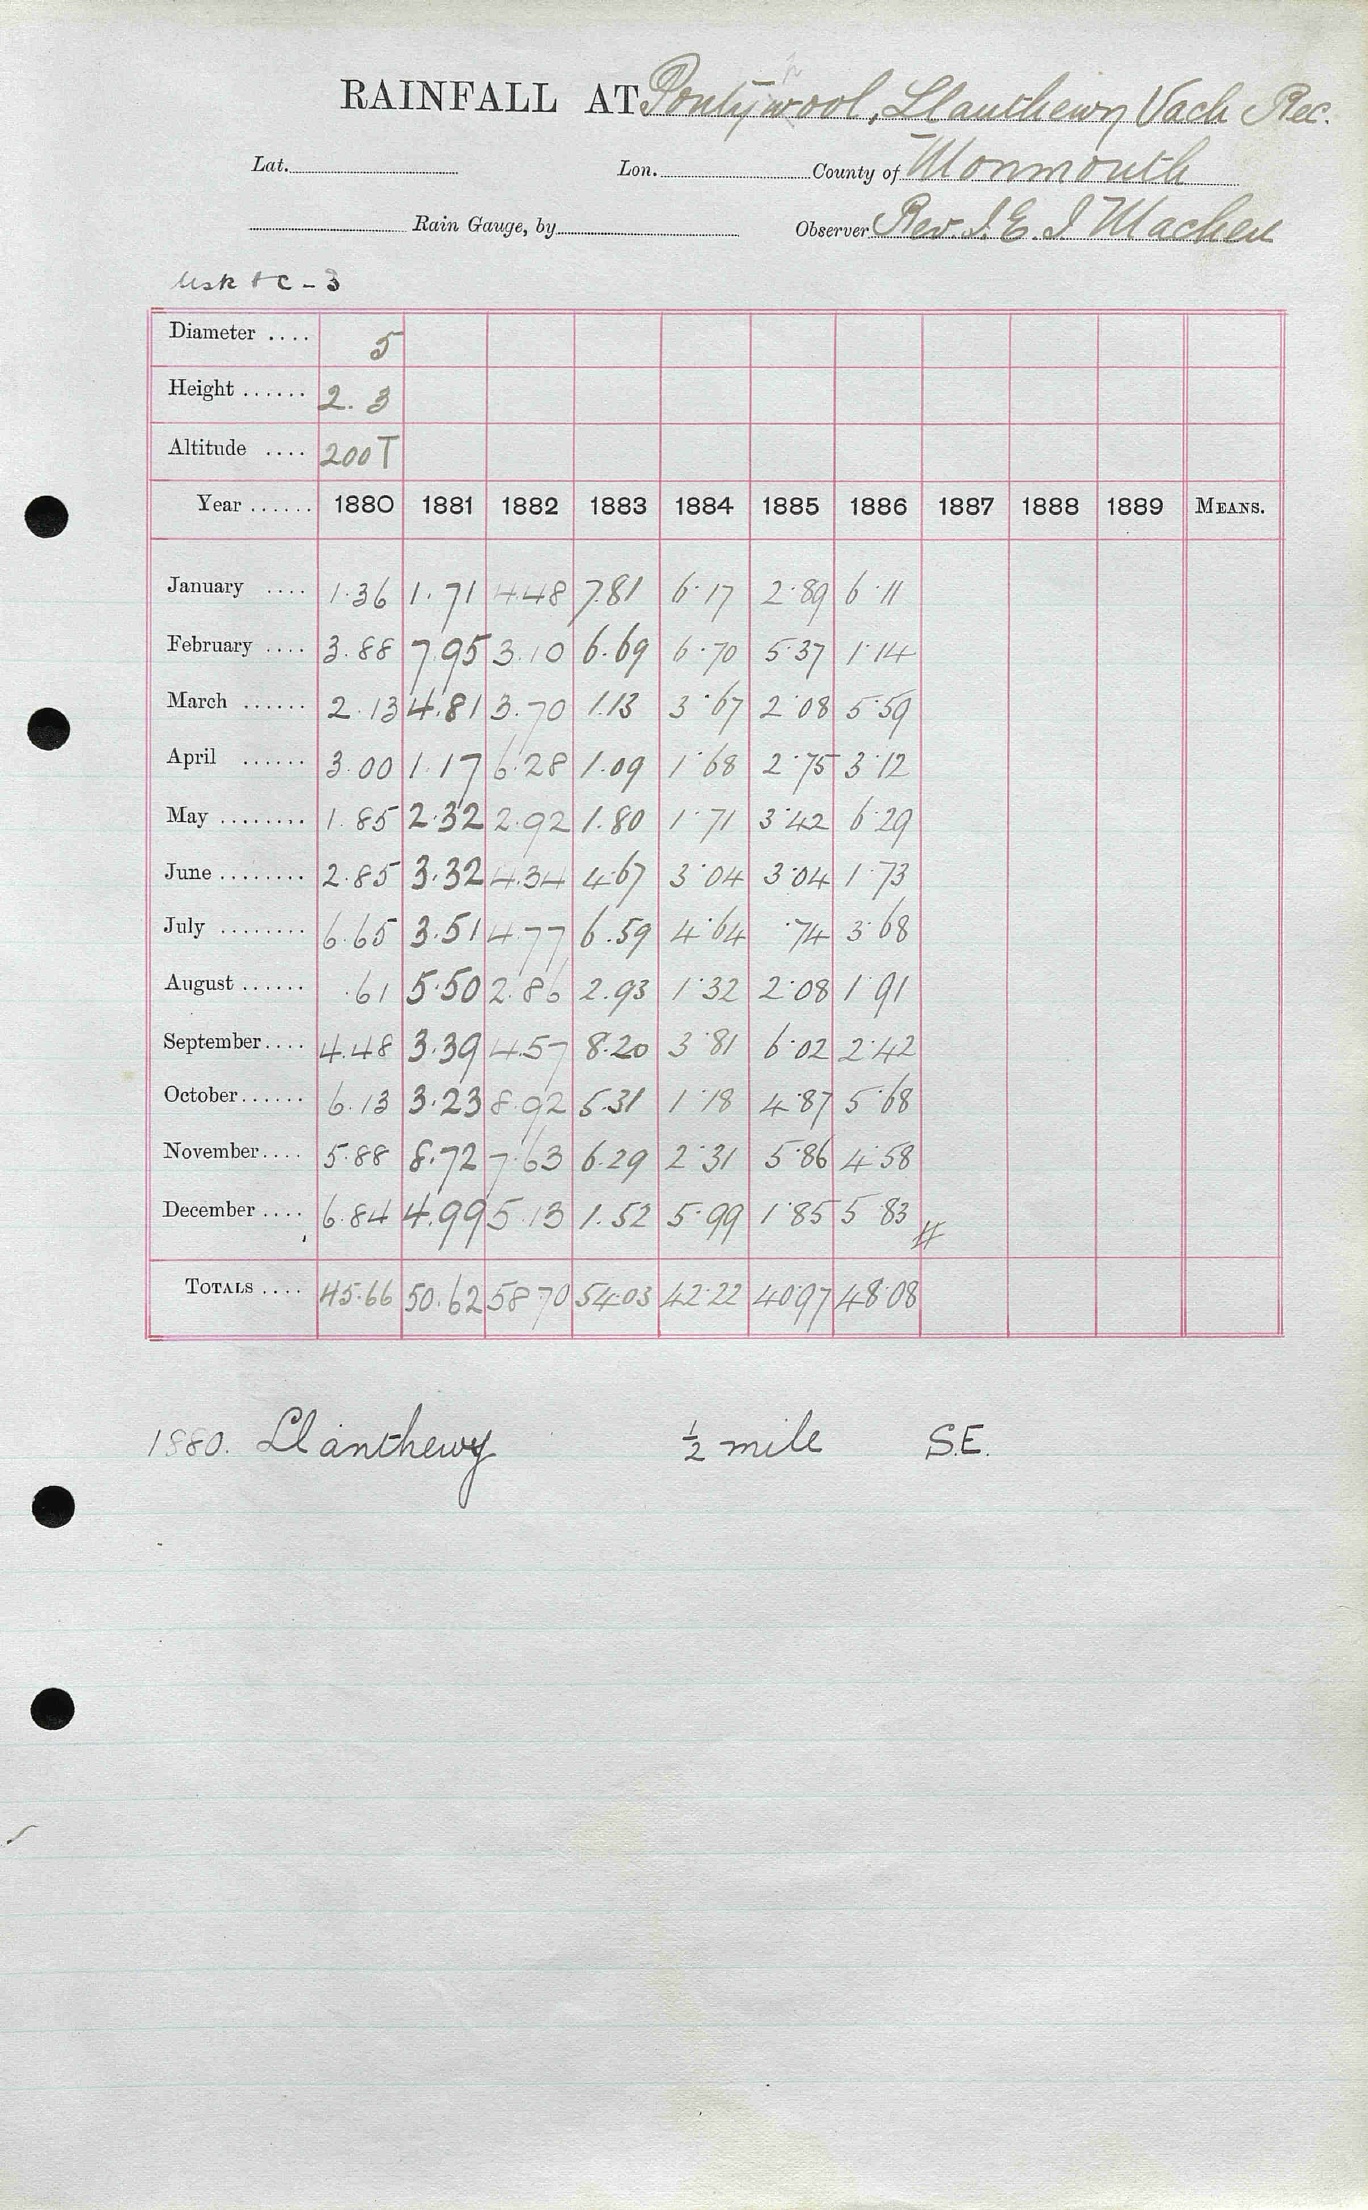 RAINFALL AT Pontywool, Llanthewy Vach Rec.
Lat. Lon. County of Monmouth
Rain Gauge, by Observer Rev. J. E. J Machen
Usk & C - 3
Diameter .... 5
Height ...... 2. 3
Altitude .... 200T
Year ...... 1880 1881 1882 1883 1884 1885 1886 1887 1888 1889 MEANS.
January .... 1.36 1.71 4.48 7.81 6.17 2.89 6.11
February .... 3.88 7.95 3.10 6.69 6.70 5.37 1.14
March ...... 2.13 4.81 3.70 1.13 3.67 2.08 5.59
April ...... 3.00 1.17 6.28 1.09 1.68 2.75 3.12
May ........ 1.85 2.32 2.92 1.80 1.71 3.42 6.29
June ........ 2.85 3.32 4.34 4.67 3.04 3.04 1.73
July ........ 6.65 3.51 4.77 6.59 4.64 .74 3.68
August ...... .61 5.50 2.86 2.93 1.32 2.08 1.91
September.... 4.48 3.39 4.57 8.20 3.81 6.02 2.42
October...... 6.13 3.23 8.92 5.31 1.18 4.87 5.68
November.... 5.88 8.72 7.63 6.29 2.31 5.86 4.58
December .... 6.84 4.99 5.13 1.52 5.99 1.85 5.83
TOTALS .... 45.66 50.62 58.70 54.03 42.22 40.97 48.08
1880. Llanthewy ½ mile S.E.